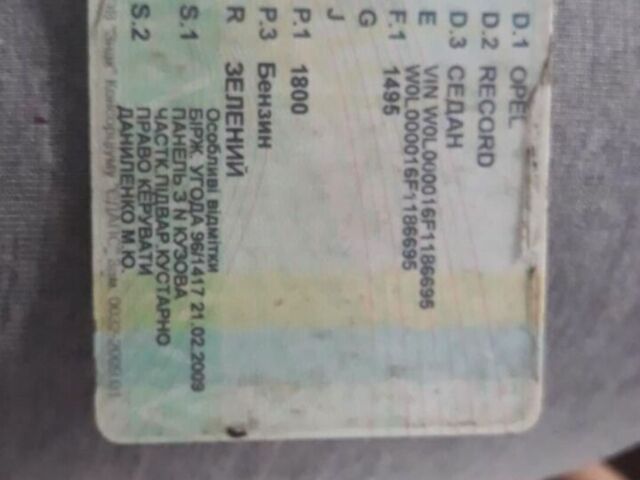 D.1 OPEL
D.2 RECORD
D.3 СЕДАН
E VIN W0L000016F1186695
W0L000016F1186695
F.1 1495
G
J
P.1 1800
P.3 Бензин
R ЗЕЛЕНИЙ
Особливі відмітки
S.1 БІРЖ. УГОДА 96/1417 21.02.2009
ПАНЕЛЬ З N КУЗОВА
ЧАСТК.ПІДВАР КУСТАРНО
S.2 ПРАВО КЕРУВАТИ
ДАНИЛЕНКО М.Ю.